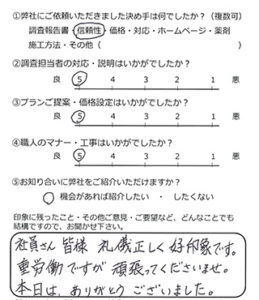 ①弊社にご依頼いただきました決め手は何でしたか？（複数可）
調査報告書・信頼性・価格・対応・ホームページ・薬剤
施工方法・その他（　　　　　）
②調査担当者の対応・説明はいかがでしたか？
良　5　4　3　2　1　悪
③プランご提案・価格設定はいかがでしたか？
良　5　4　3　2　1　悪
④職人のマナー・工事はいかがでしたか？
良　5　4　3　2　1　悪
⑤お知り合いに弊社をご紹介いただけますか？
機会があれば紹介したい ・ したくない
印象に残ったこと・その他ご意見・ご要望など、どんなことでも
結構ですので、お聞かせ下さい。
社員さん 皆様 礼儀正しく 好印象です。
重労働ですが 頑張ってくださいませ。
本日は、ありがとうございました。